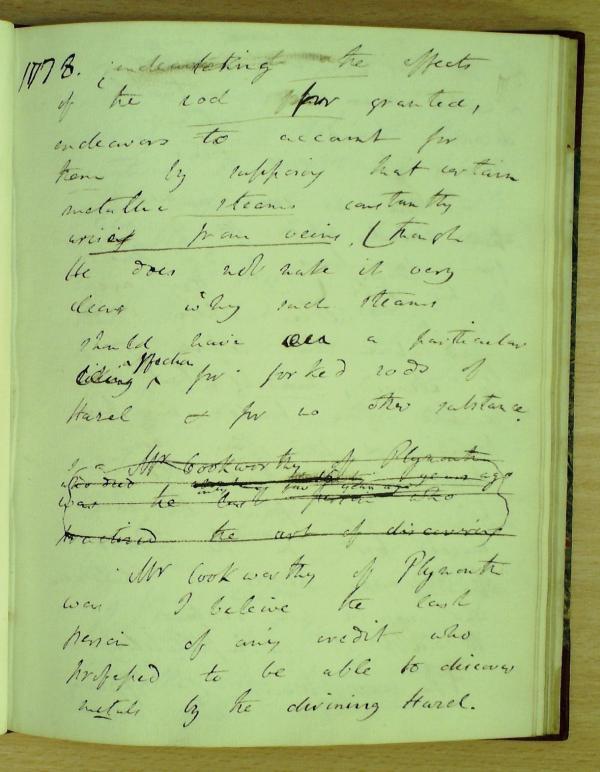 1778. the effects
of the rod for granted,
endeavors to account for
them by supposing that certain
metallic steams constantly
arise from veins, (though
He does not make it very
clear why such steams
should have a particular
affection for forked rods of
Hazel & for no other substance.
Mr Cookworthy of Plymouth
who died years ago
was the last person who
practised the art of discovering
Mr Cookworthy of Plymouth
was I beleive the last
person of any credit who
professed to be able to discover
metals by the divining Hazel.